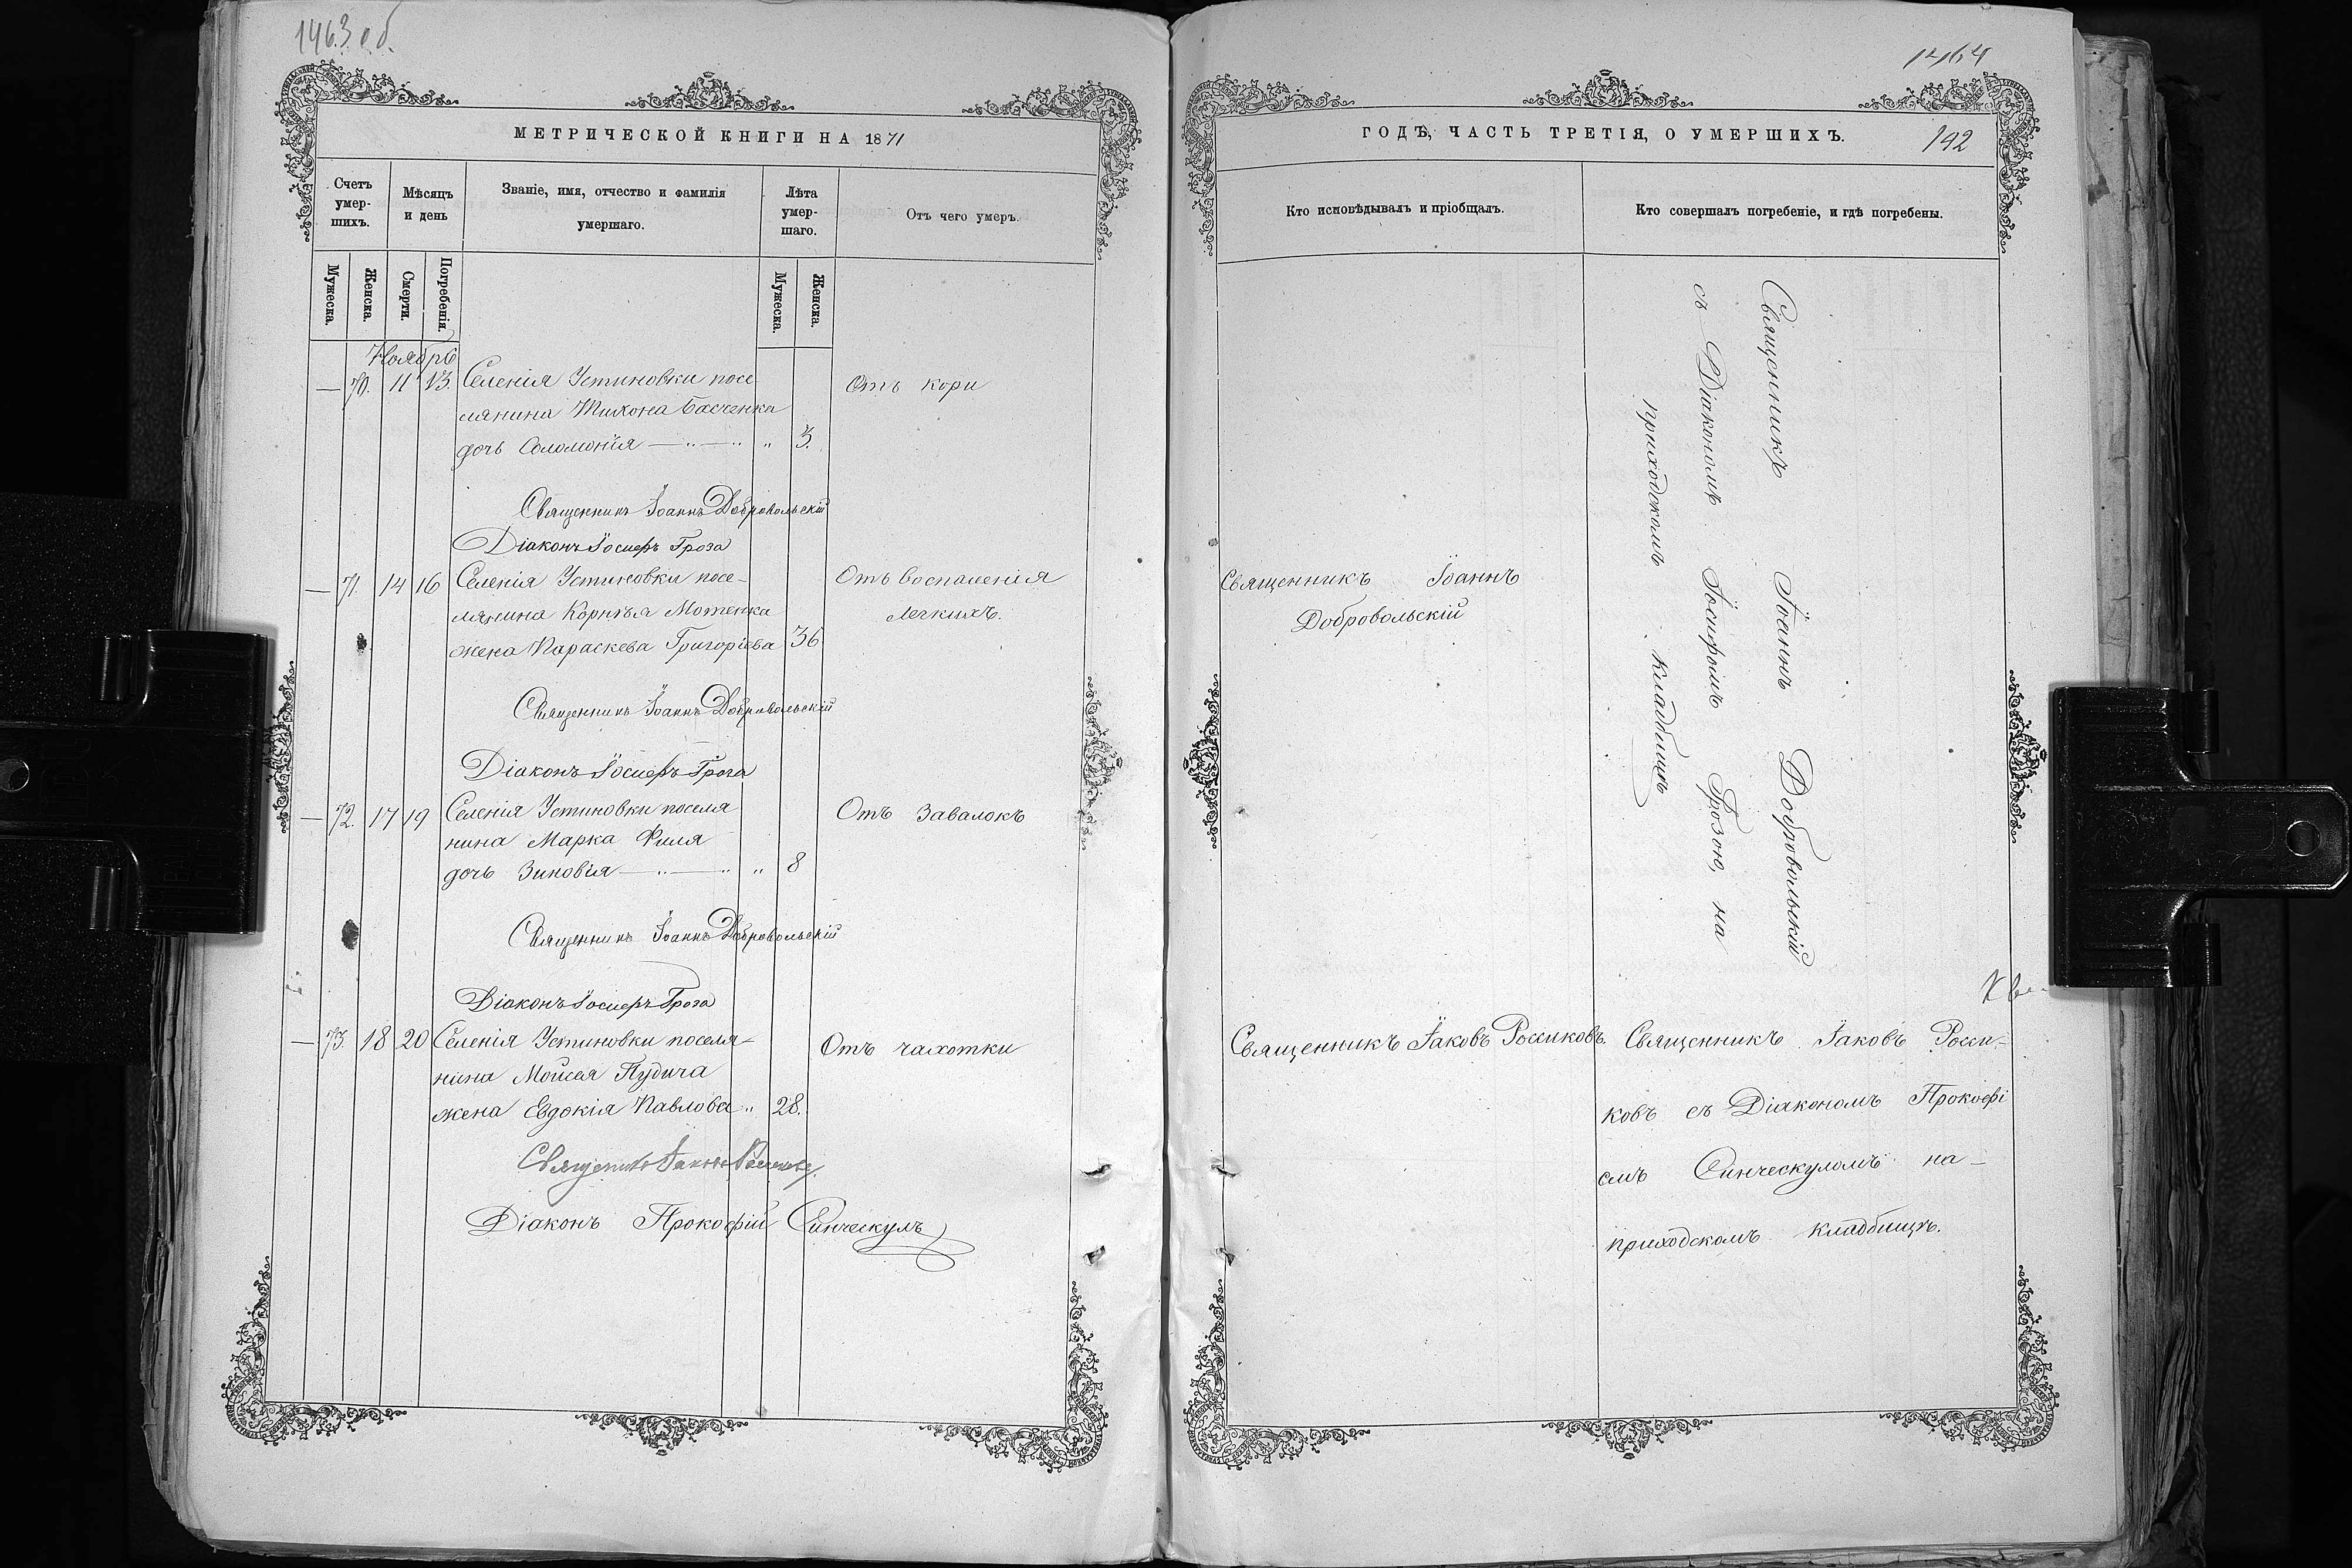 1463 об.
МЕТРИЧЕСКОЙ КНИГИ НА 1871
Счетъ умер-шихъ.
Мѣсяцъ и день
Званіе, имя, отчество и фамилія умершаго.
Лѣта умер-шаго.
Отъ чего умеръ.
Мужеска.
Женска.
Смерти.
Погребенія.
Мужеска.
Женска.
Ноябрь
— 70. 11 13 Селенія Устиновки посе
лянина Тихона Басченка
дочь Соломонія — " — " " 3.
Отъ кори
Священникъ Іоаннъ Добровольскій
Діаконъ Іосифъ Гроза
— 71. 14 16 Селенія Устиновки посе-
лянина Корнѣя Мотенка
жена Параскева Григоріева 36
Отъ воспаленія
легкихъ.
Священникъ Іоаннъ Добровольскій
Діаконъ Іосифъ Гроза
— 72. 17 19 Селенія Устиновки поселя
нина Марка Филя
дочь Зиновія — " — " " 8
Отъ завалокъ
Священникъ Іоаннъ Добровольскій
Діаконъ Іосифъ Гроза
— 73. 18 20 Селенія Устиновки поселя-
нина Мойсея Пудича
жена Евдокія Павлова " 28.
Отъ чахотки
Священникъ Іаковъ Россиковъ.
Діаконъ Прокофій Синческулъ
1464
ГОДѢ, ЧАСТЬ ТРЕТІЯ, О УМЕРШИХЪ.
192
Кто исповѣдывалъ и пріобщалъ.
Кто совершалъ погребеніе, и гдѣ погребены.
Священникъ Іоаннъ Добровольскій
съ Діакономъ Іосифомъ Грозою, на
приходскомъ кладбищѣ
Священникъ Іоаннъ
Добровольскій
Священникъ Іаковъ Россиковъ.
Священникъ Іаковъ Росси-
ковъ съ Діакономъ Прокофі
емъ Синческуломъ на-
приходскомъ кладбищѣ.